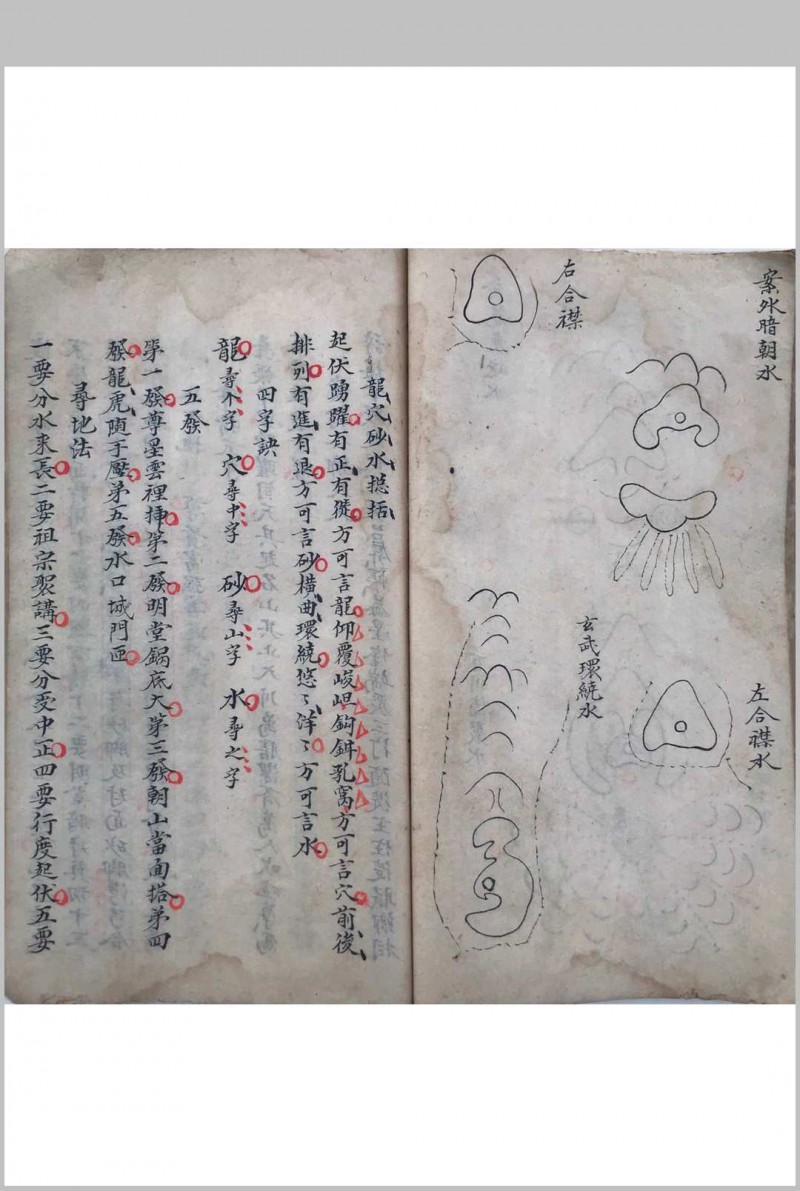 案外暗朝水
左合襟水
玄武環繞水
右合襟
龍穴砂水揔括
起伏踴躍有正有從方可言龍仰覆峻岨鈎鉗乳窩方可言穴前後
排列有進有退方可言砂橫曲環繞悠〻洋〻方可言水
四字訣
龍尋个字 穴尋中字 砂尋山字 水尋之字
五發
第一發尊星雲裡揷第二發明堂鍋底大第三發朝山當面搭第四
發龍虎随手壓第五發水口城門匝
尋地法
一要分水来長二要祖宗聚講三要分受中正四要行度起伏五要